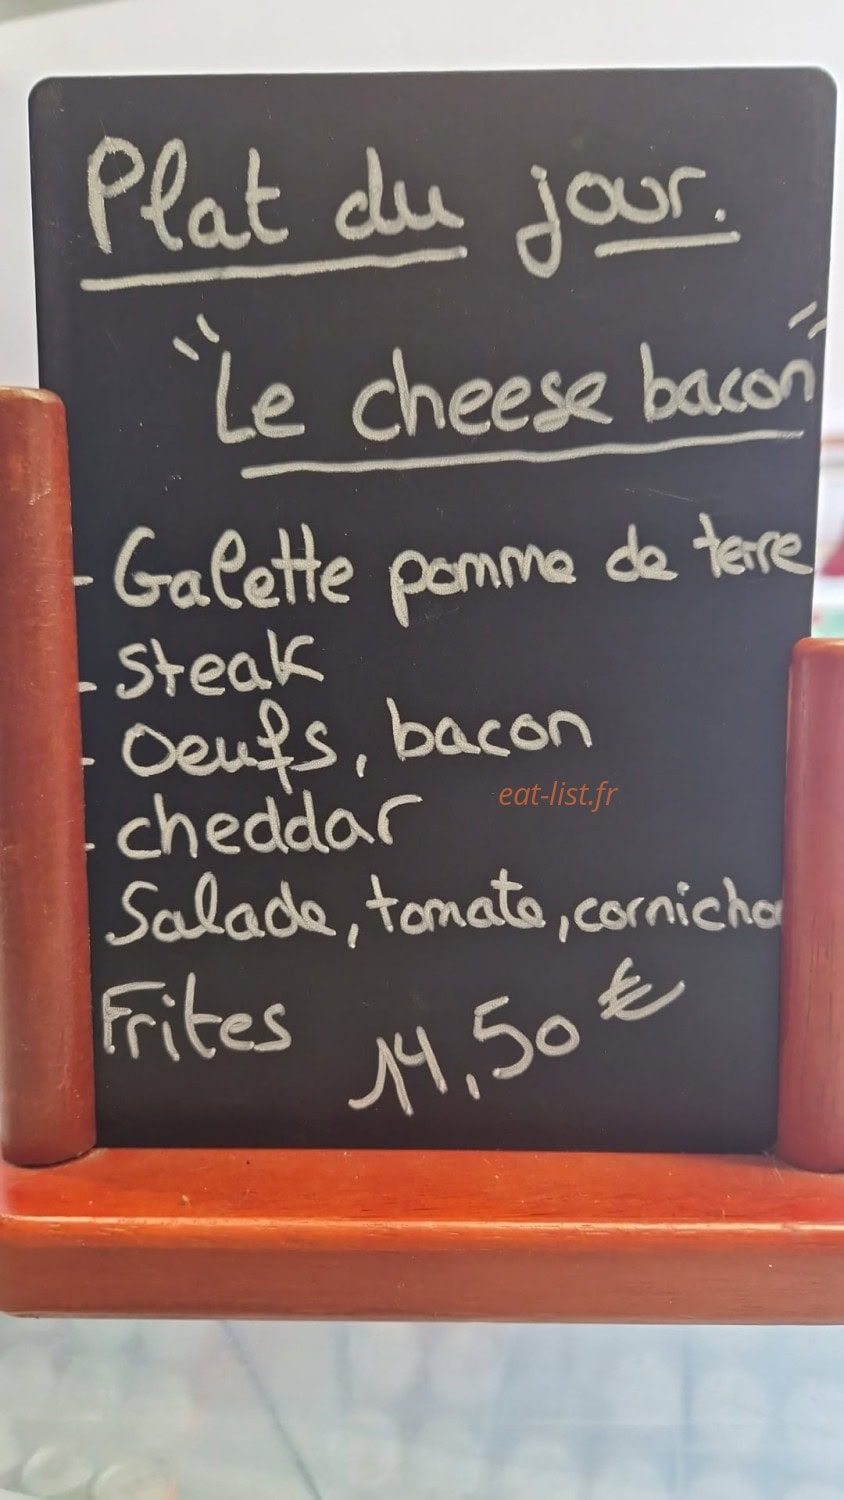 Plat du jour.
"Le cheese bacon"
- Galette pomme de terre
- Steak
- Oeufs, bacon
eat-list.fr
- cheddar
Salade, tomate, cornicho
Frites 14,50 €